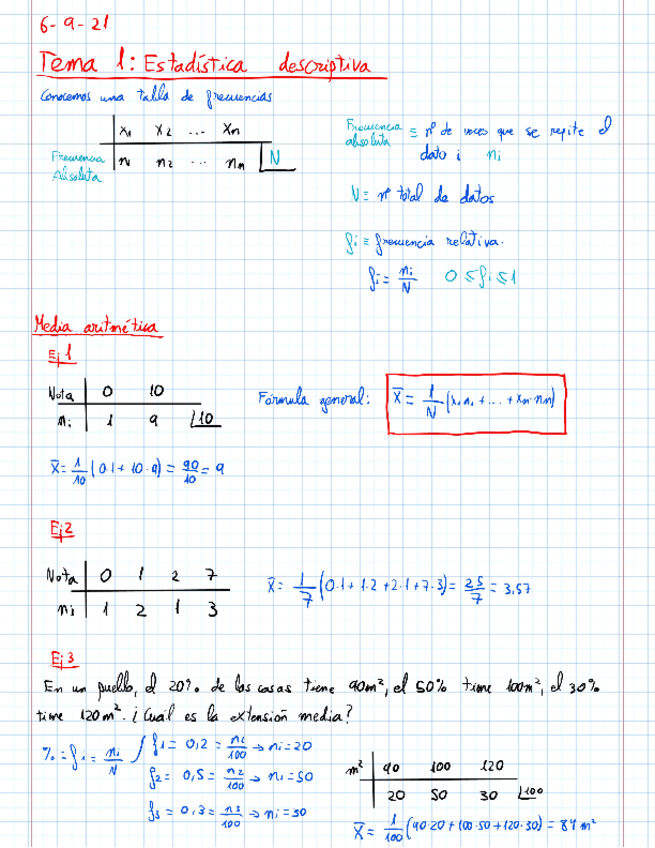 6-9-21
Tema 1: Estadística descriptiva
Conocemos una tabla de frecuencias
x₁ x₂ ... xₙ
Frecuencia Absoluta n₁ n₂ ... nₙ N
Frecuencia absoluta ≡ nº de veces que se repite el dato i nᵢ
N ≡ nº total de datos
fᵢ ≡ frecuencia relativa.
fᵢ = nᵢ/N 0 ≤ fᵢ ≤ 1
Media aritmética
Ej 1
Nota 0 10
nᵢ 1 9 10
Fórmula general: x̄ = 1/N (x₁n₁ + ... + xₙ·nₙ)
x̄ = 1/10 (0·1 + 10·9) = 90/10 = 9
Ej 2
Nota 0 1 2 7
nᵢ 1 2 1 3
x̄ = 1/7 (0·1 + 1·2 + 2·1 + 7·3) = 25/7 = 3,57
Ej 3
En un pueblo, el 20% de las casas tiene 90m², el 50% tiene 100m², el 30%
tiene 120m². ¿Cuál es la extensión media?
% = fᵢ = nᵢ/N
f₁ = 0,2 = n₁/100 → nᵢ = 20
f₂ = 0,5 = n₂/100 → nᵢ = 50
f₃ = 0,3 = n₃/100 → nᵢ = 30
m² 90 100 120
20 50 30 100
x̄ = 1/100 (90·20 + 100·50 + 120·30) = m²